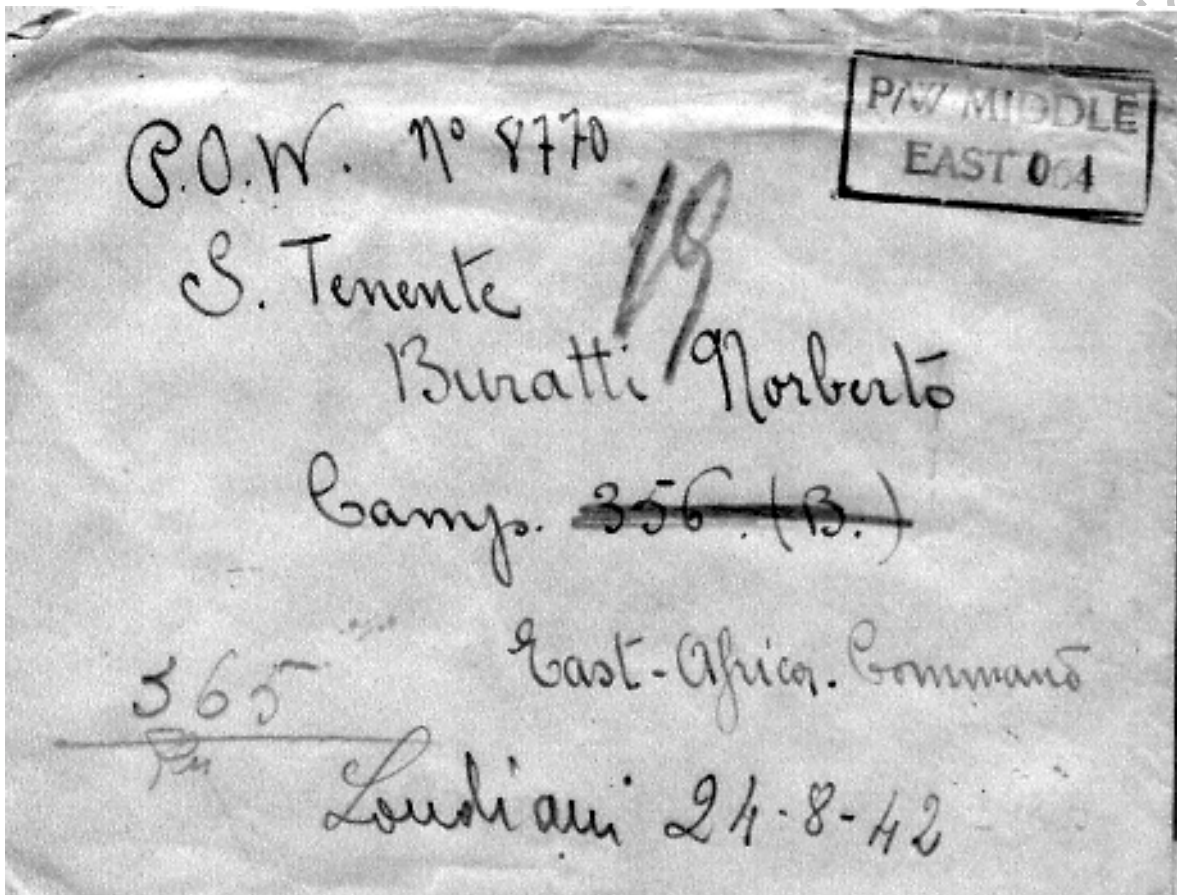 P/W MIDDLE
EAST 064
P.O.W. n° 8770
19
S. Tenente
Buratti Norberto
Camp. 356. (B.)
East-Africa. Command
365
Londiani 24-8-42